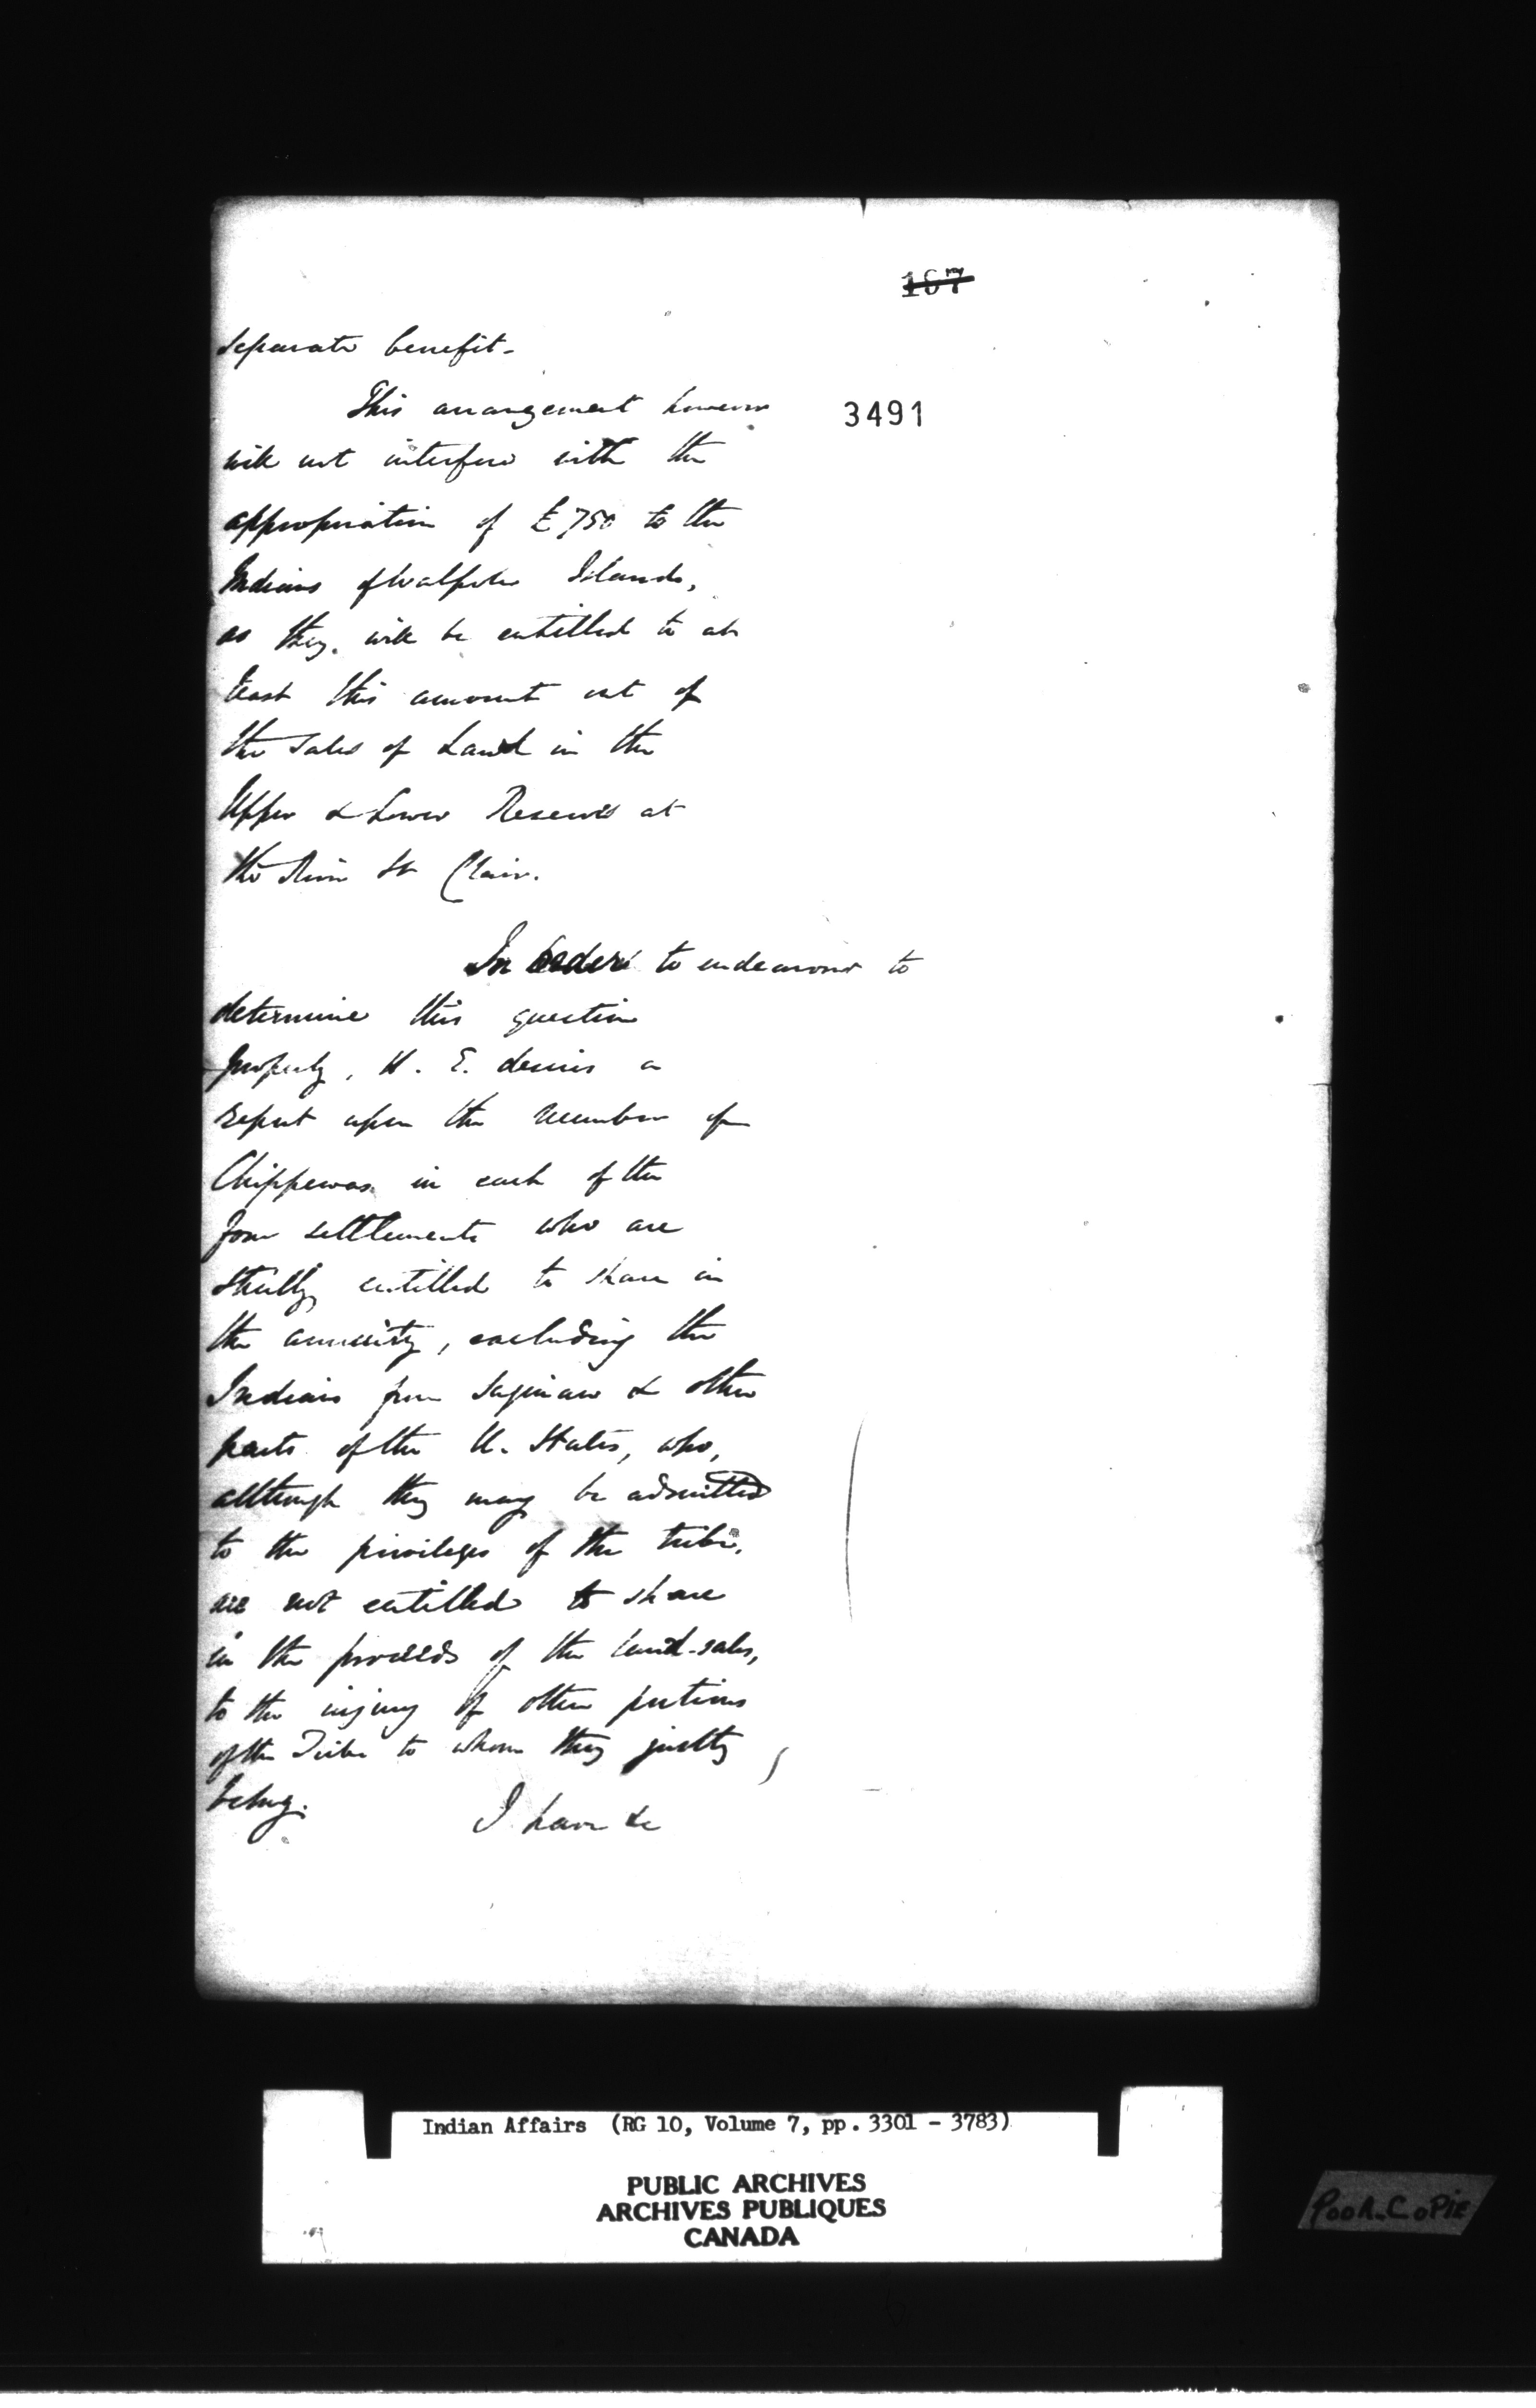 187
separate benefit.
This arrangement however
3491
will not interfere with the
appropriation of £750 to the
Indians of Walpole Island,
as they will be entitled to at
least this amount out of
the Sales of Land in the
Upper & Lower Reserves at
the River St Clair.
In order to endeavour to
determine this question
properly, H. E. desires a
report upon the number of
Chippewas in each of the
four settlements who are
strictly entitled to share in
the annuity, excluding the
Indians from Saginaw & other
parts of the U. States, who,
although they may be admitted
to the privileges of the tribe,
are not entitled to share
in the proceeds of the land-sales,
to the injury of other portions
of the Tribe to whom they justly
belong.
I have &c
Indian Affairs (RG 10, Volume 7, pp. 3301 - 3783)
PUBLIC ARCHIVES
ARCHIVES PUBLIQUES
CANADA
POOR COPIE